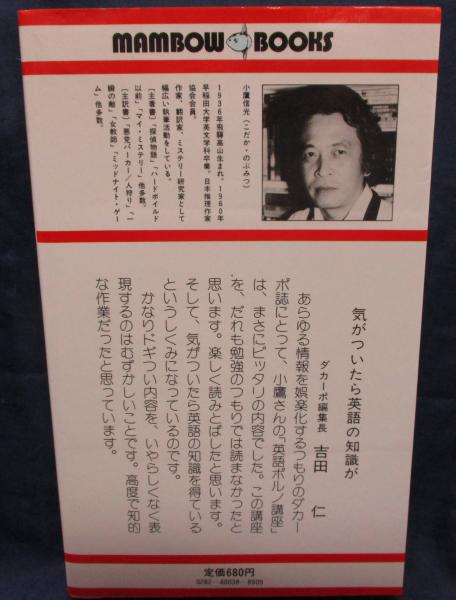 MAMBOW BOOKS
小鷹信光(こだか・のぶみつ)
1936年飛騨高山生まれ。1960年
早稲田大学英文学科卒業。日本推理作家
協会会員。
作家、翻訳家、ミステリー研究家として
幅広い執筆活動をしている。
〔主著書〕「探偵物語」「ハードボイルド
以前」「マイ・ミステリー」他多数。
〔主訳書〕「悪党パーカー/人狩り」「一
瞬の敵」「女教師」「ミッドナイト・ゲー
ム」他多数。
気がついたら英語の知識が
ダカーポ編集長 吉田 仁
あらゆる情報を娯楽化するつもりのダカー
ポ誌にとって、小鷹さんの「英語ポルノ講座」
は、まさにピッタリの内容でした。この講座
を、だれも勉強のつもりでは読まなかったと
思います。楽しく読みとばしたと思います。
そして、気がついたら英語の知識を得ている
というしくみになっているのです。
かなりドギつい内容を、いやらしくなく表
現するのはむずかしいことです。高度で知的
な作業だったと思っています。
定価680円
0282-40038-8909